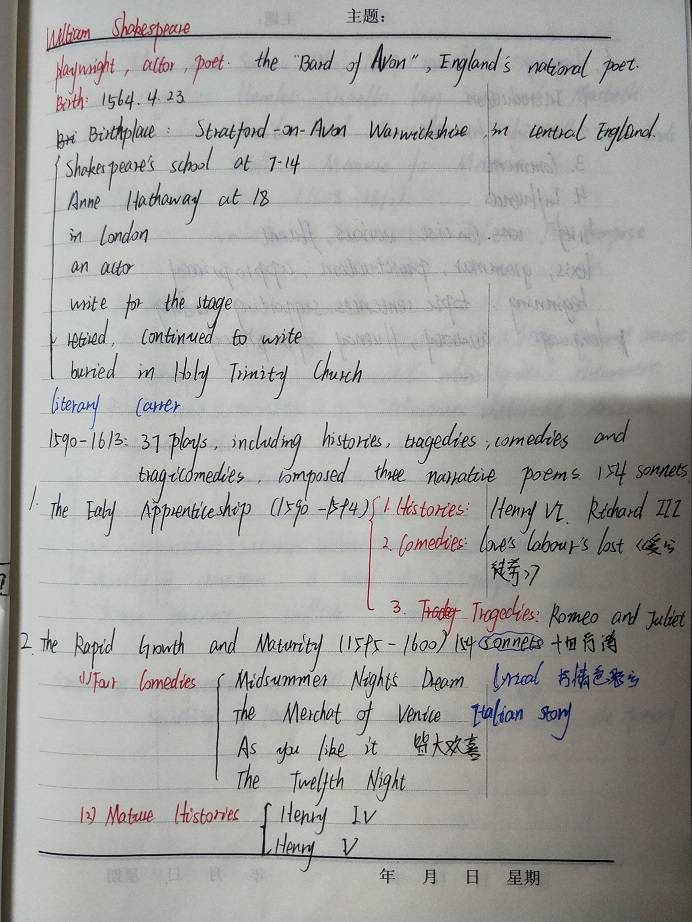 主题：
William Shakespeare
playwright, actor, poet. the "Bard of Avon", England's national poet.
Birth: 1564.4.23
Birthplace: Stratford-on-Avon Warwickshire in central England.
Shakespeare's school at 7-14
Anne Hathaway at 18
in London
an actor
write for the stage
retired, continued to write
buried in Holy Trinity Church
literary carrer
1590-1613: 37 plays, including histories, tragedies, comedies and
tragicomedies, composed three narrative poems 154 sonnets.
1. The Ealy Apprenticeship (1590-1594) 1. Histories: Henry VI. Richard III
2. Comedies: love's labour's lost 《爱的
徒劳》
3. Tragedies: Romeo and Juliet
2. The Rapid Growth and Maturity (1595-1600) 154 sonnets 十四行诗
(1) Four Comedies Midsummer Night's Dream lyrical 抒情色彩
The Merchat of Venice Italian story
As you like it 皆大欢喜
The Twelfth Night
(2) Mature Histories Henry IV
Henry V
年 月 日 星期